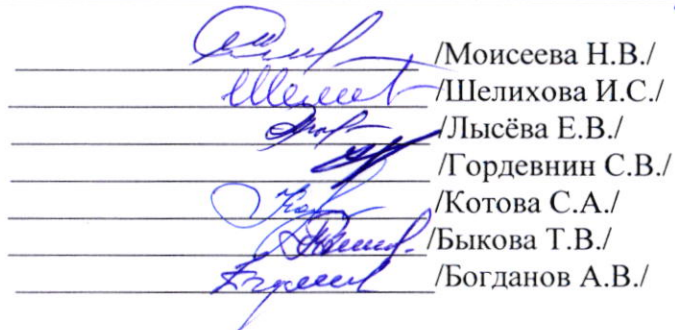 /Моисеева Н.В./
/Шелихова И.С./
/Лысёва Е.В./
/Гордевнин С.В./
/Котова С.А./
/Быкова Т.В./
/Богданов А.В./